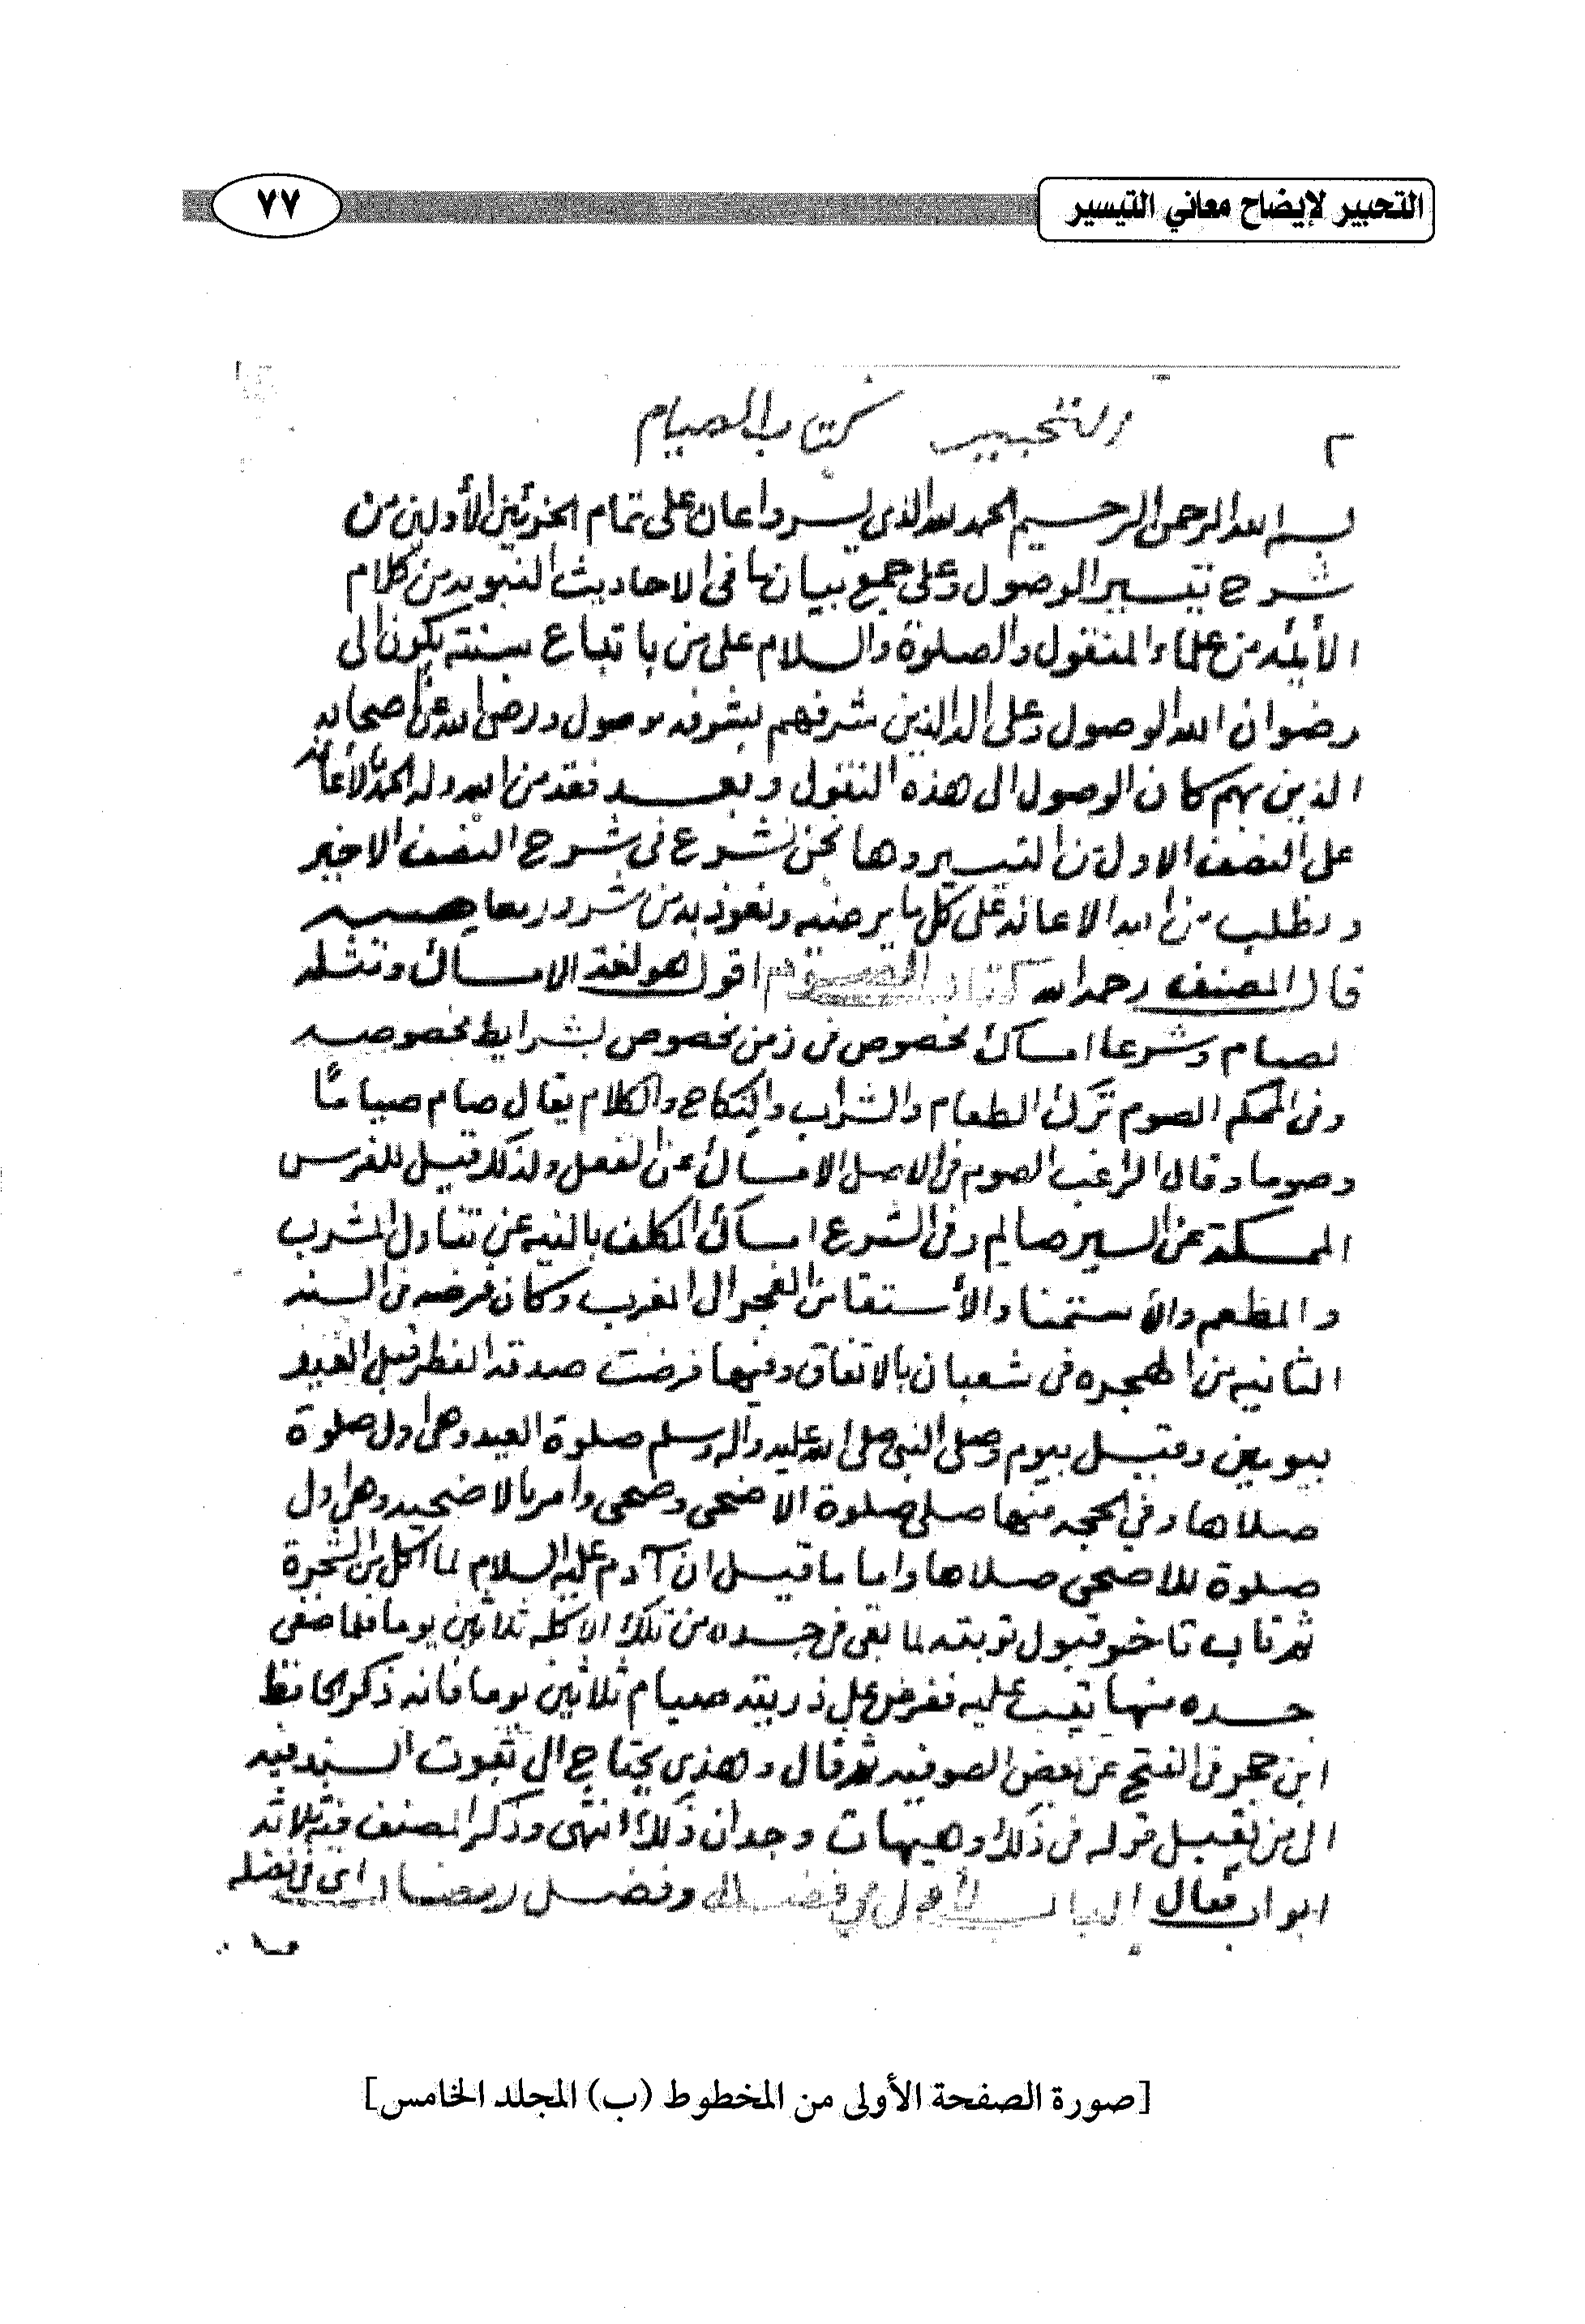 التحبير لإيضاح معاني التيسير
٧٧
التحبير كتاب الصيام
٢
بسم الله الرحمن الرحيم الحمد لله الذي يسر واعان على تمام الجزئين الأولين من
شرح تيسير الوصول وعلى جمع بيانها في الاحاديث النبويه من كلام
الأئمه من علماء المنقول والصلوة والسلام على من باتباع سنته يكون الى
رضوان الله الوصول وعلى اله الذين شرفهم بشرفه موصول ورضى الله عن اصحابه
الذين بهم كان الوصول الى هذه النقول وبعد فقد من الله وله الحمد بالأعانه
على النصف الاول من التيسير وها نحن نشرع في شرح النصف الاخير
ونطلب من الله الاعانه على كل ما يرضيه ونعوذ به من شرور معاصيه
قال المصنف رحمه الله كتاب الصوم اقول هو لغة الامساك ومثله
لصيام وشرعا امساك مخصوص في زمن مخصوص بشرايط مخصوصه
وفى المحكم الصوم ترك الطعام والشراب والنكاح والكلام يقال صام صياما
وصوما وقال الراغب الصوم في الاصل الامساك عن الفعل ولذلك قيل للفرس
الممسكة عن السير صايم وفى الشرع امساك المكلف بالنيه عن تناول المشرب
والمطعم والاستمنا والأستقا من الفجر الى المغرب وكان فرضه في السنه
الثانيه من الهجره في شعبان بالاتفاق وفيها فرضت صدقه الفطر قبل العيد
بيومين وقيل بيوم وصلى النبي صلى الله عليه واله وسلم صلوة العيد وهى اول صلوة
صلاها وفي الحجه منها صلى صلوة الاضحى وضحى وامر بالاضحيه وهى اول
صلوة للاضحى صلاها واما ما قيل ان آدم عليه السلام لما اكل من الشجرة
ثم تاب تاخر قبول توبته لما بقى في جسده من تلك الاكله ثلاثين يوما فلما صفى
جسده منها تيب عليه ففرض على ذريته صيام ثلاثين يوما فانه ذكر الحافظ
ابن حجر في الفتح عن بعض الصوفيه ثم قال وهذى يحتاج الى ثبوت السند فيه
الى من يقبل قوله في ذلك وهيهات وجدان ذلك انتهى وذكر المصنف فيه ثلاثه
ابواب فقال الباب الأول في فضله وفضل رمضان اى في فضله
[صورة الصفحة الأولى من المخطوط (ب) المجلد الخامس]